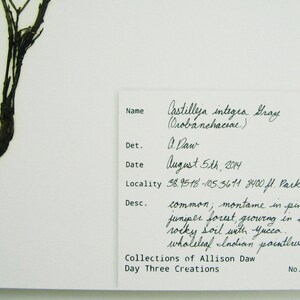 Name Castilleja integra Gray
(Orobanchaceae)
Det. A. Daw
Date August 5th, 2014
Locality 38.9518 -105.3611 8400 ft. Park
Desc. common, montane in
juniper forest, growing in
rocky soil with Yucca.
wholeleaf Indian paintbru
Collections of Allison Daw
Day Three Creations No.